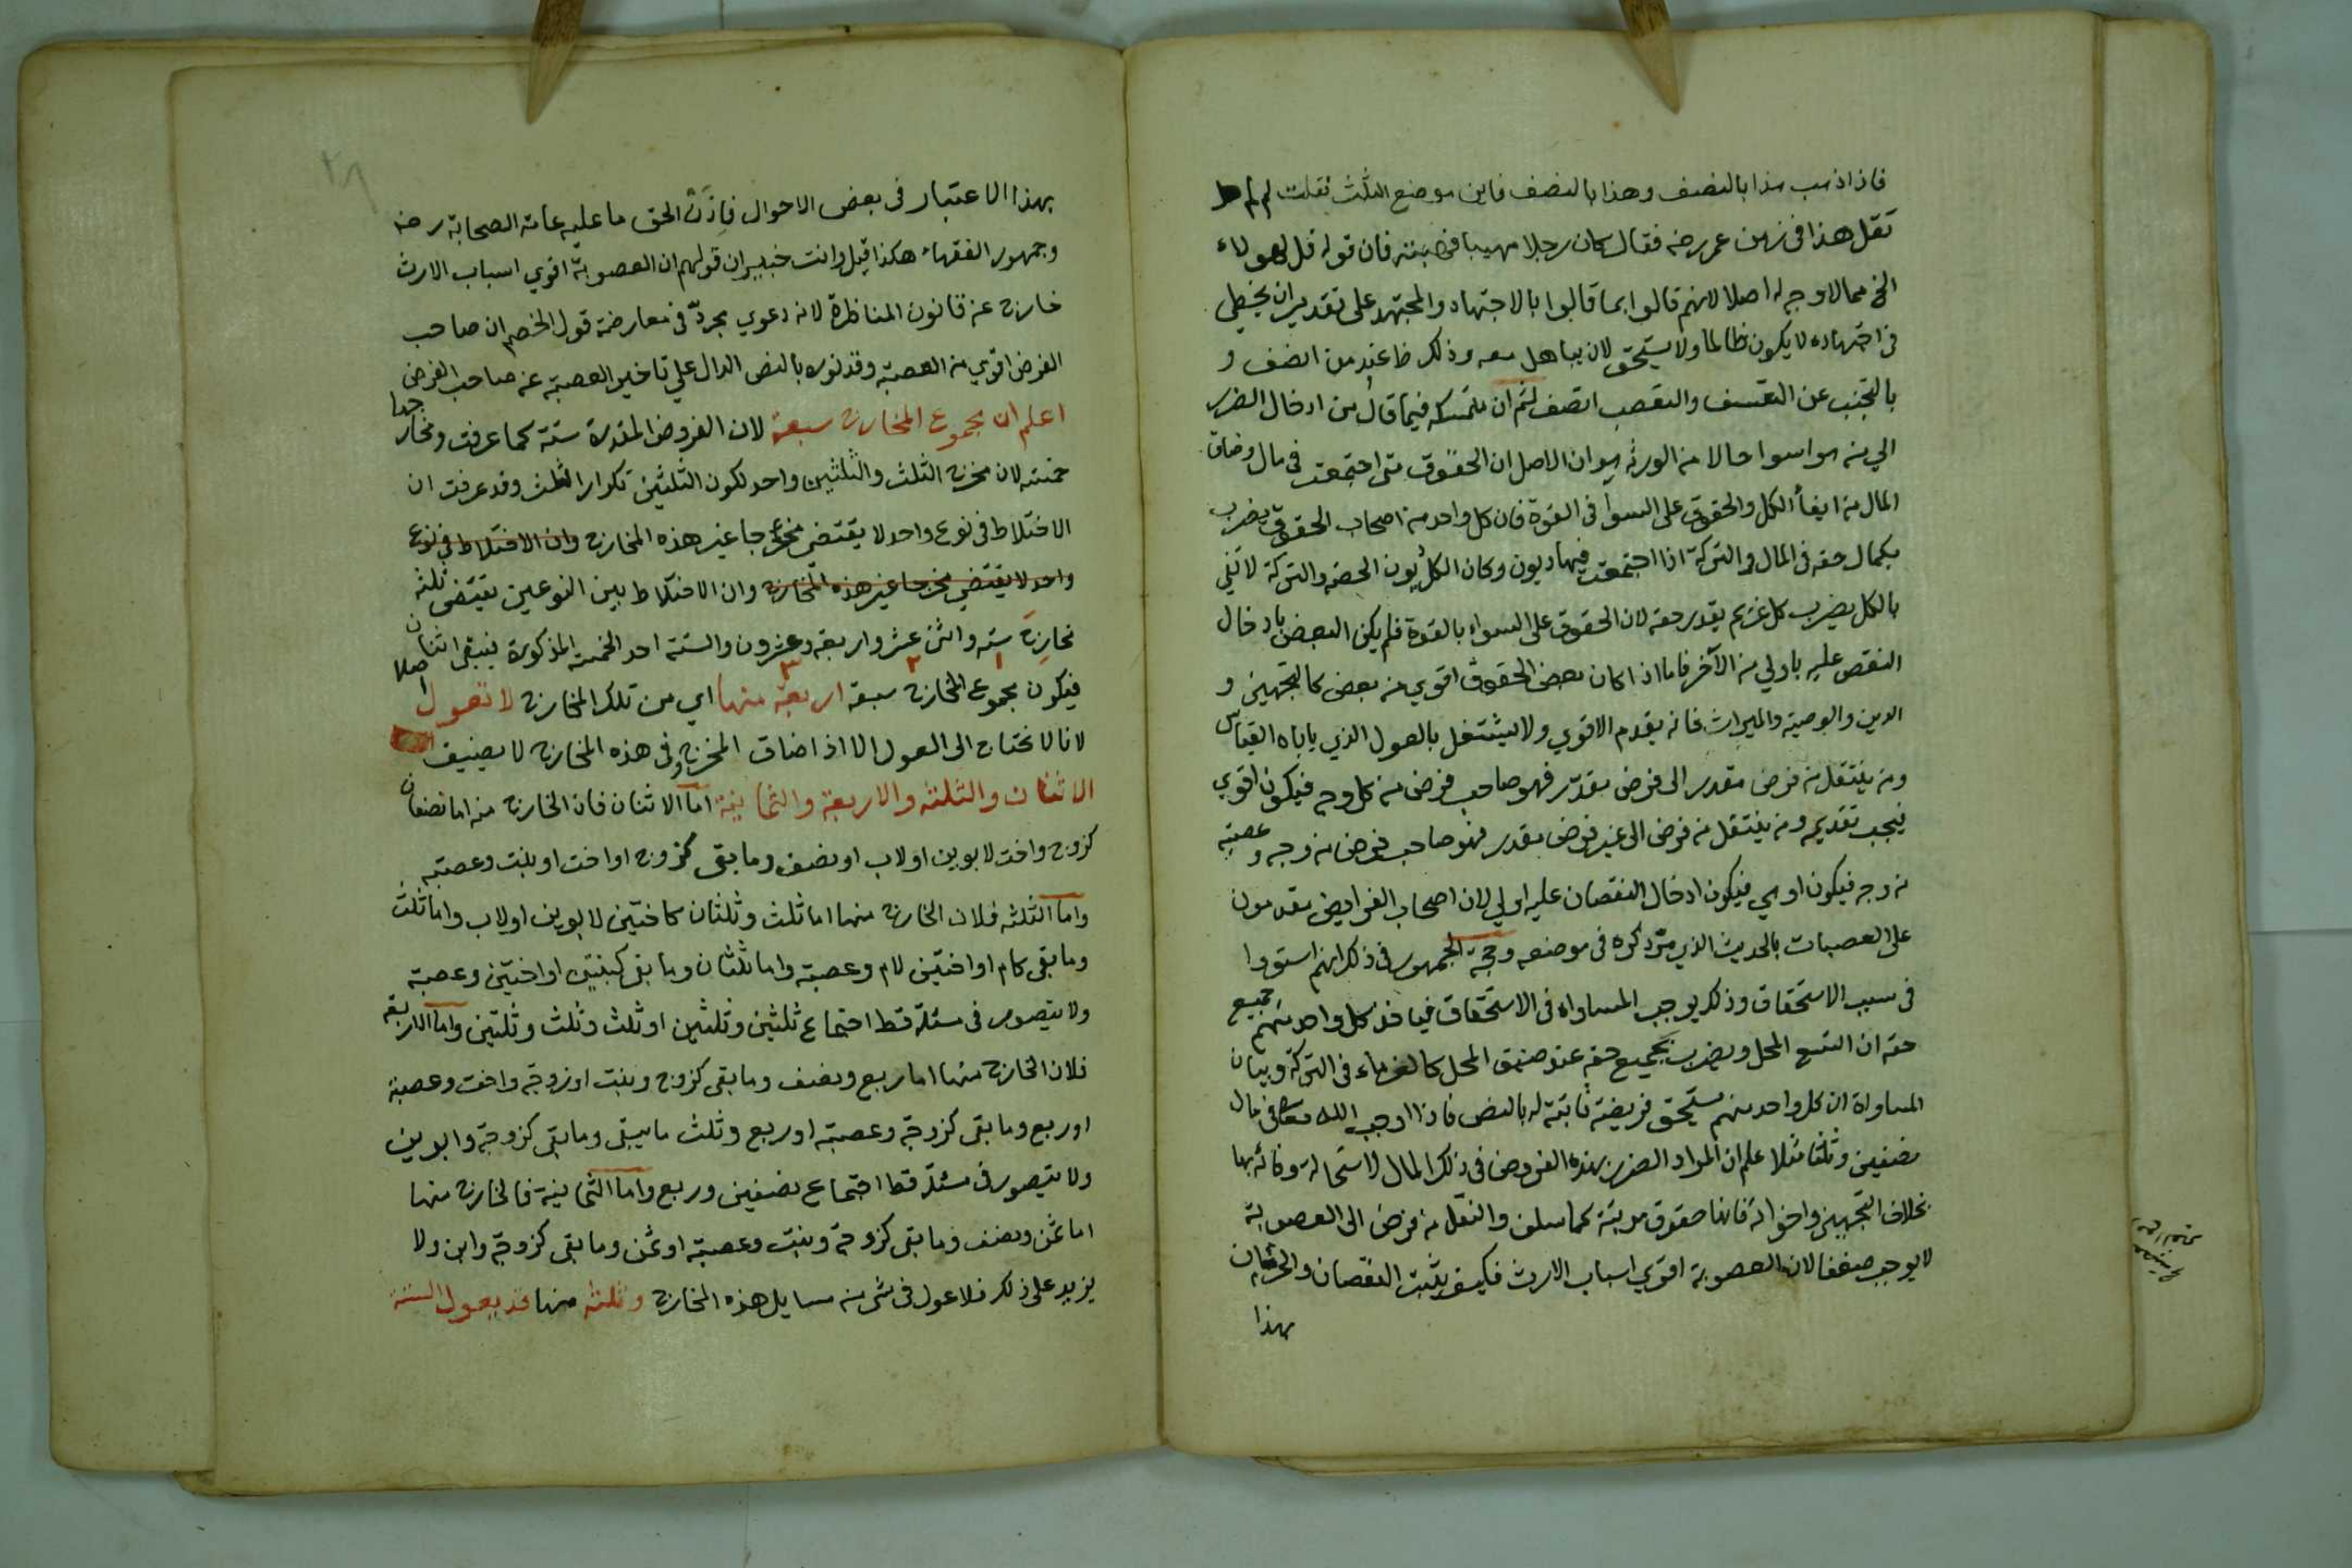 فاذا ذهب هذا بالنصف وهذا بالنصف فاين موضع الثلث فقلت لم لم
تقل هذا في زمن عمر رضه فقال كان رجلا مهيبا فهبته فان قوله قل لهولاء
الخ مما لا وجه له اصلا لانهم قالوا بما قالوا بالاجتهاد والمجتهد على تقدير ان يخطي
في اجتهاده لا يكون ظالما ولا يستحق لان يباهل معه وذلك ظ عند من انصف و
بالتجنب عن التعسف والتعصب اتصف ثم ان متمسكه فيما قال من ادخال الضرر
الي من هو اسوا حالا من الورثه هو ان الاصل ان الحقوق متى اجتمعت في مال وضاق
المال من ايفأ الكل والحقوق على السوا في القوة فان كل واحد من اصحاب الحقوق يضرب
بكمال حقه في المال والتركة اذا اجتمعت فيها ديون وكان الكل ديون الصحه والتركة لا تفي
بالكل يضرب كل غريم بقدر حقه لان الحقوق على السواء بالقوة فلم يكن البعض بادخال
النقص عليه باولي من الآخر فاما اذا كان بعض الحقوق اقوي من بعض كالتجهيز و
الدين والوصية والميراث فانه يقدم الاقوي ولا يشتغل بالعول الذي ياباه القياس
ومن ينتقل من فرض مقدر الى فرض مقدر فهو صاحب فرض من كل وجه فيكون اقوي
فيجب تقديمه ومن ينتقل من فرض الى غير فرض مقدر فهو صاحب فرض من وجه وعصبته
من وجه فيكون اوهي فيكون ادخال النقصان عليه اولي لان اصحاب الفرايض مقدمون
على العصبات بالحديث الذي مرّ ذكره في موضعه وحجة الجمهور في ذلك انهم استووا
في سبب الاستحقاق وذلك يوجب المساواه في الاستحقاق فياخذ كل واحد منهم جميع
حقه ان اتسع المحل ويضرب بجميع حقه عند ضيق المحل كالغرماء في التركة وبيان
المساواة ان كل واحد منهم يستحق فريضة ثابتة له بالنص فاذا اوجب الله تعالى في مال
نصفين وثلثا مثلا علم ان المراد الضرب بهذه الفروض في ذلك المال لاستحالة وفائه بها
بخلاف التجهيز واخواته فانها حقوق مرتبة كما سلف والنقل من فرض الى العصوبة
لا يوجب ضعفا لان العصوبة اقوي اسباب الارث فكيف يثبت النقصان والحرمان
بهذا
بهذا الاعتبار في بعض الاحوال فاذن الحق ما عليه عامة الصحابة رضه
وجمهور الفقهاء هكذا قيل وانت خبير ان قولهم ان العصوبة اقوي اسباب الارث
خارج عن قانون المناظرة لانه دعوي مجردّ في معارضة قول الخصم ان صاحب
الفرض اقوي من العصبة وقد نوره بالنص الدال علي تاخير العصبة عن صاحب الفرض جدا
اعلم ان مجموع المخارج سبعة لان الفروض المقدرة ستة كما عرفت ومخارجها
خمسه لان مخرج الثلث والثلثين واحد لكون الثلثين تكرار الثلث وقد عرفت ان
الاختلاط في نوع واحد لا يقتضي مخرجا غير هذه المخارج وان الاختلاط في نوع
واحد لا يقتضي مخرجا غير هذه المخارج وان الاختلاط بين النوعين يقتضي ثلثه
مخارج سته واثني عشر واربعه وعشرون والستة احد الخمسة المذكورة فيبقى اثنان
فيكون مجموع المخارج سبعة اربعة منها اي من تلك المخارج لا تعول اصلا
لانا لا نحتاج الى العول الا اذا ضاق المخرج وفي هذه المخارج لا يضيق
الاثنان والثلثه والاربعة والثمانية اما الاثنان فان الخارج منه اما نصفان
كزوج واخت لابوين او لاب او نصف وما بقي كزوج او اخت او بنت وعصبته
واما الثلثه فلان الخارج منها اما ثلث وثلثان كاختين لابوين او لاب واما ثلث
وما بقي كام او اختين لام وعصبة واما ثلثان وما بقي كبنتين او اختين وعصبة
ولا يتصور في مسئلة قط اجتماع ثلثين وثلثين او ثلث وثلث وثلثين واما الاربعة
فلان الخارج منها اما ربع ونصف وما بقي كزوج وبنت او زوجة واخت وعصبة
او ربع وما بقي كزوجة وعصبته او ربع وثلث ما يبقى وما بقي كزوجة وابوين
ولا يتصور في مسئلة قط اجتماع نصفين وربع واما الثمانية فالخارج منها
اما ثمن ونصف وما بقي كزوجة وبنت وعصبته او ثمن وما بقي كزوجة وابن ولا
يزيد على ذلك فلا عول في شئ من مسايل هذه المخارج وثلثه منها قد يعول الستة